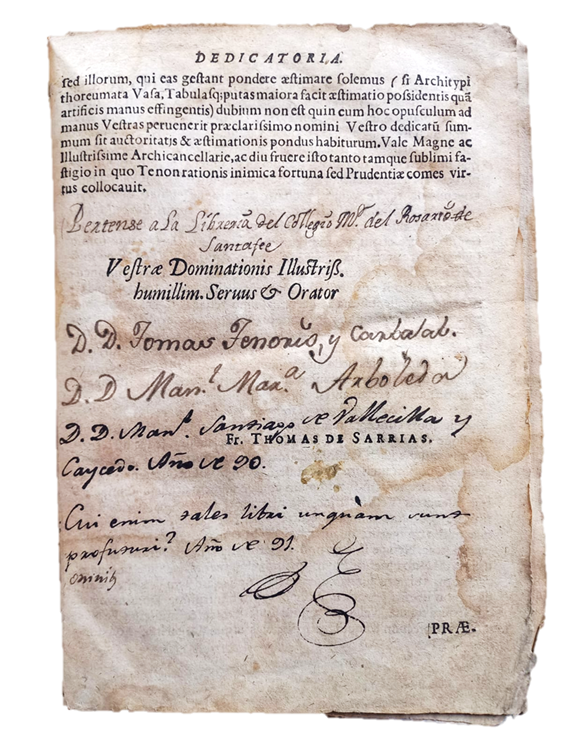 DEDICATORIA.
sed illorum, qui eas gestant pondere æstimare solemus (si Architypi
thoreumata Vasa, Tabulasq; putas maiora facit æstimatio possidentis quã
artificis manus effingentis) dubium non est quin cum hoc opusculum ad
manus Vestras peruenerit præclarissimo nomini Vestro dedicatũ sum-
mum sit auctoritatis & æstimationis pondus habiturum. Vale Magne ac
Illustrissime Archicancellarie, ac diu fruere isto tanto tamque sublimi fa-
stigio in quo Te non rationis inimica fortuna sed Prudentiæ comes vir-
tus collocauit.
a La Libreria del Collegio Mr. del Rosario de
Santafee
Vestræ Dominationis Illustriss.
humillim. Seruus & Orator
D. D. Tomas Tenorio, y Carbalal.
D. D Man.l Mar.a Arboleda
D. D. Man.l Santiago de Vallecilla y
Fr. THOMAS DE SARRIAS.
Caycedo. Año de 90.
Cui enim tales libri unquam sunt
profuturi? Año de 91.
PRÆ-